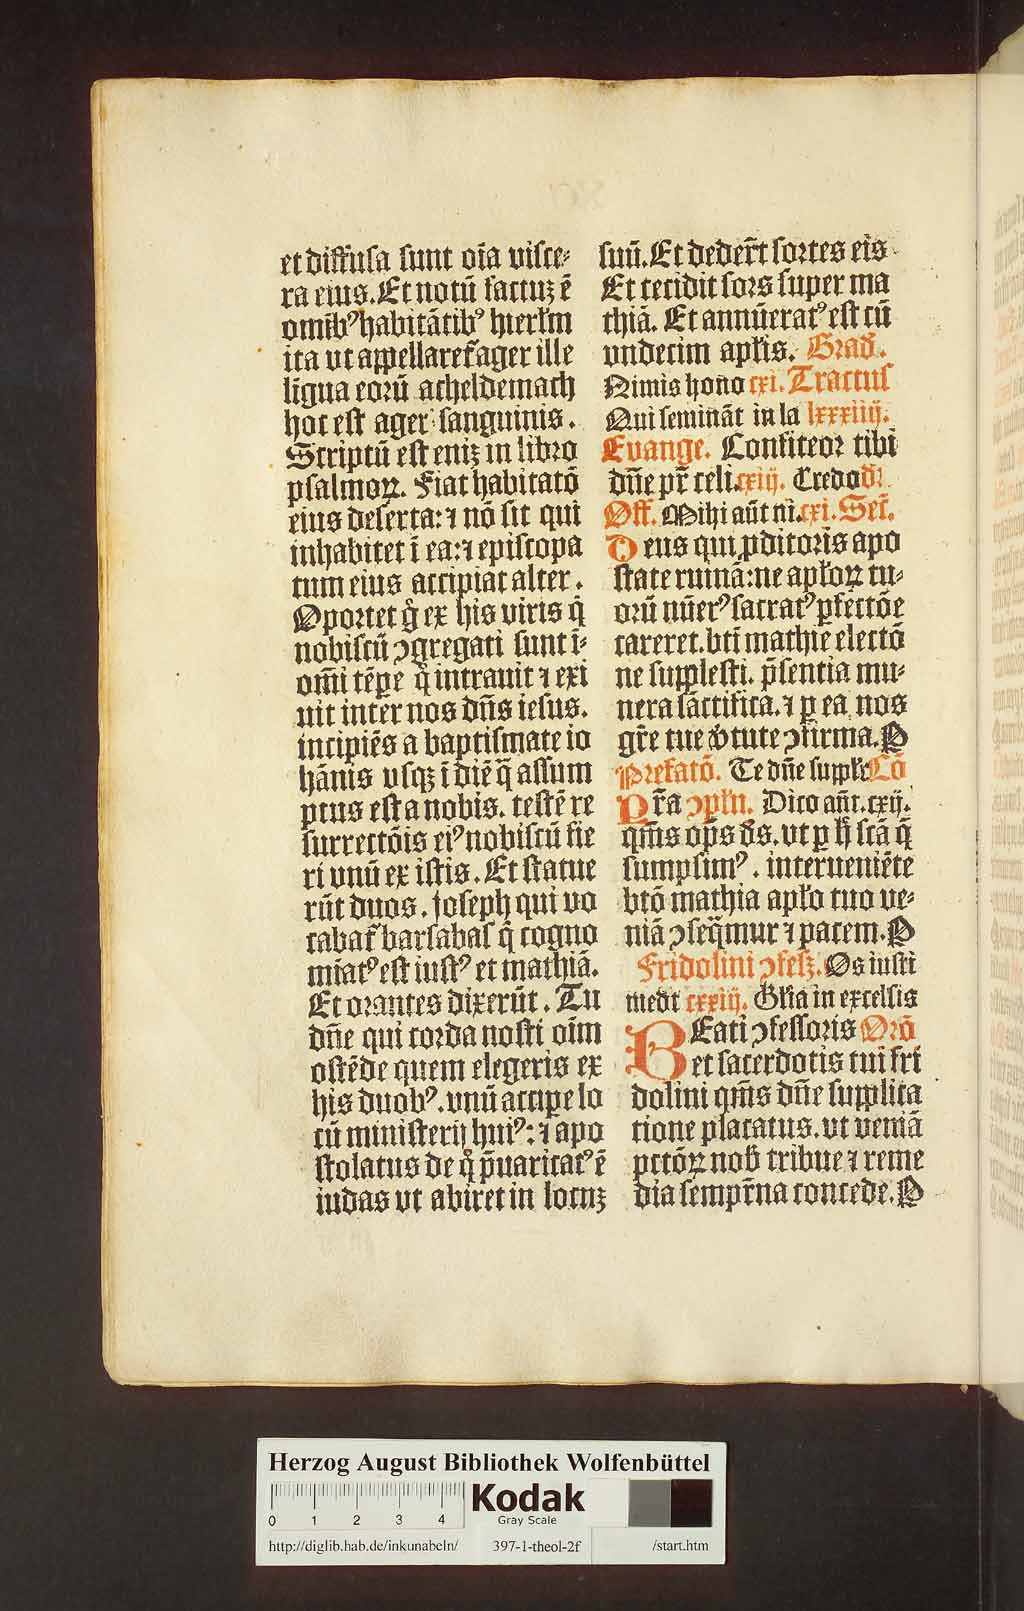 et diffusa sunt oīa visce⸗
ra eius. Et notū factuꝫ ē
omībꝰ habitātibꝰ hierłm
ita vt appellaret᷑ ager ille
lĩgua eorū acheldemach
hoc est ager sanguinis.
Scriptū est eniꝫ in libro
psalmoꝝ. Fiat habitatō
eius deserta: ⁊ nō sit qui
inhabitet ī ea: ⁊ episcopa
tum eius accipiat alter.
Oportet gͦ ex his viris q̄
nobiscū ꝯgregati sunt ī⸗
om̄i tēpe qͦ intrauit ⁊ exi
uit inter nos dn̄s iesus.
incipiēs a baptismate io
hānis vsqꝫ ī diē q̄ assum
ptus est a nobis. testē re
surrectōis eiꝰ nobiscū fie
ri vnū ex istis. Et statue
rūt duos. Joseph qui vo
cabat᷑ barsabas q̄ cogno
miatꝰ est iustꝰ et mathiā.
Et orantes dixerūt. Tu
dn̄e qui corda nosti oīm
ostēde quem elegeris ex
his duobꝰ. vnū accipe lo
cū ministerij huiꝰ: ⁊ apo
stolatus de qͦ p̄uaricatꝰ ē
iudas vt abiret in locuꝫ
suū. Et dedert̄ sortes eis
Et cecidit sors super ma
thiā. Et annūeratꝰ est cū
vndecim apłis. Grad̄.
Nimis hono cxi. Tractus
Qui semināt in la lxxxiiij.
Euange. Confiteor tibi
dn̄e pr̄ celi. cxiij. Credo dr̄
Off. Mihi aūt ni. cxi. Scr̄.
Deus qui ꝓditoris apo
state ruinā: ne apłoꝝ tu⸗
orū nūerꝰ sacratꝰ ꝑfectōe
careret. bt̄i mathie electō
ne supplesti. p̄sentia mu⸗
nera sāctifica. ⁊ ꝑ ea nos
gr̄e tue v̓tute ꝯfirma. P
Prefatō. Te dn̄e supplr̄ Cō
Pr̄a ꝯpłn. Dico aūt. cxij.
qm̄s op̄s ds̄. vt ꝑ hͦ scā q̄
sumpsimꝰ. interueniēte
btō mathia apło tuo ve⸗
niā ꝯseq̄mur ⁊ pacem. P
Fridolini ꝯfesꝫ. Os iusti
medit cxxiij. Glīa in excelsis
BEati ꝯfessoris Orō
et sacerdotis tui fri
dolini qm̄s dn̄e supplica
tione placatus. vt veniā
pctōꝝ nob̄ tribue ⁊ reme
dia sempit̄na concede. P
Herzog August Bibliothek Wolfenbüttel
0 1 2 3 4
Kodak
Gray Scale
http://diglib.hab.de/inkunabeln/ 397-1-theol-2f /start.htm